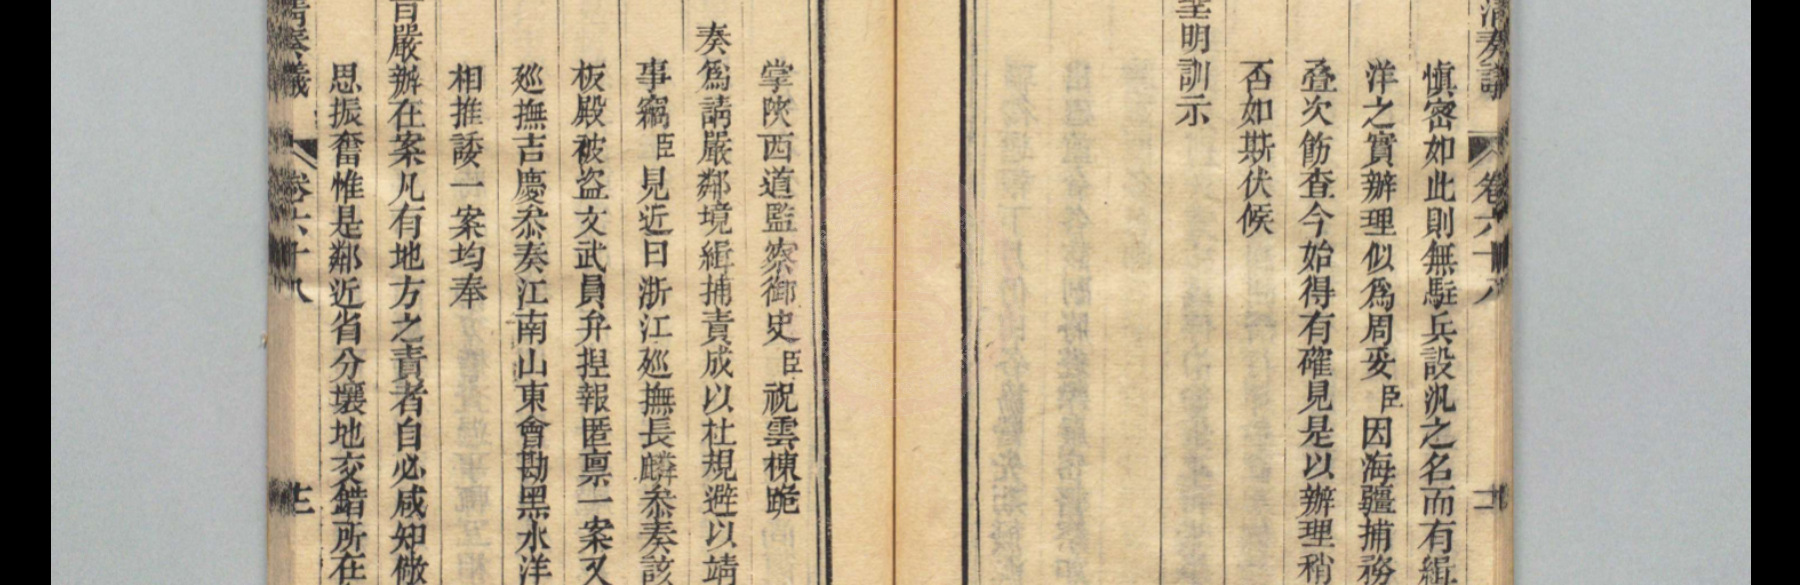 清奏議
卷六十八
慎密如此則無駐兵設汛之名而有緝
洋之實辦理似爲周妥臣因海疆捕務
叠次飭查今始得有確見是以辦理稍
否如斯伏候
聖明訓示
掌陜西道監察御史臣祝雲棟跪
奏爲請嚴鄰境緝捕責成以杜規避以靖
事竊臣見近日浙江廵撫長麟叅奏該
板殿被盗文武員弁揑報匿禀一案又
廵撫吉慶叅奏江南山東會勘黑水洋
相推諉一案均奉
旨嚴辦在案凡有地方之責者自必咸知儆
思振奮惟是鄰近省分壤地交錯所在
清奏議
卷六十八